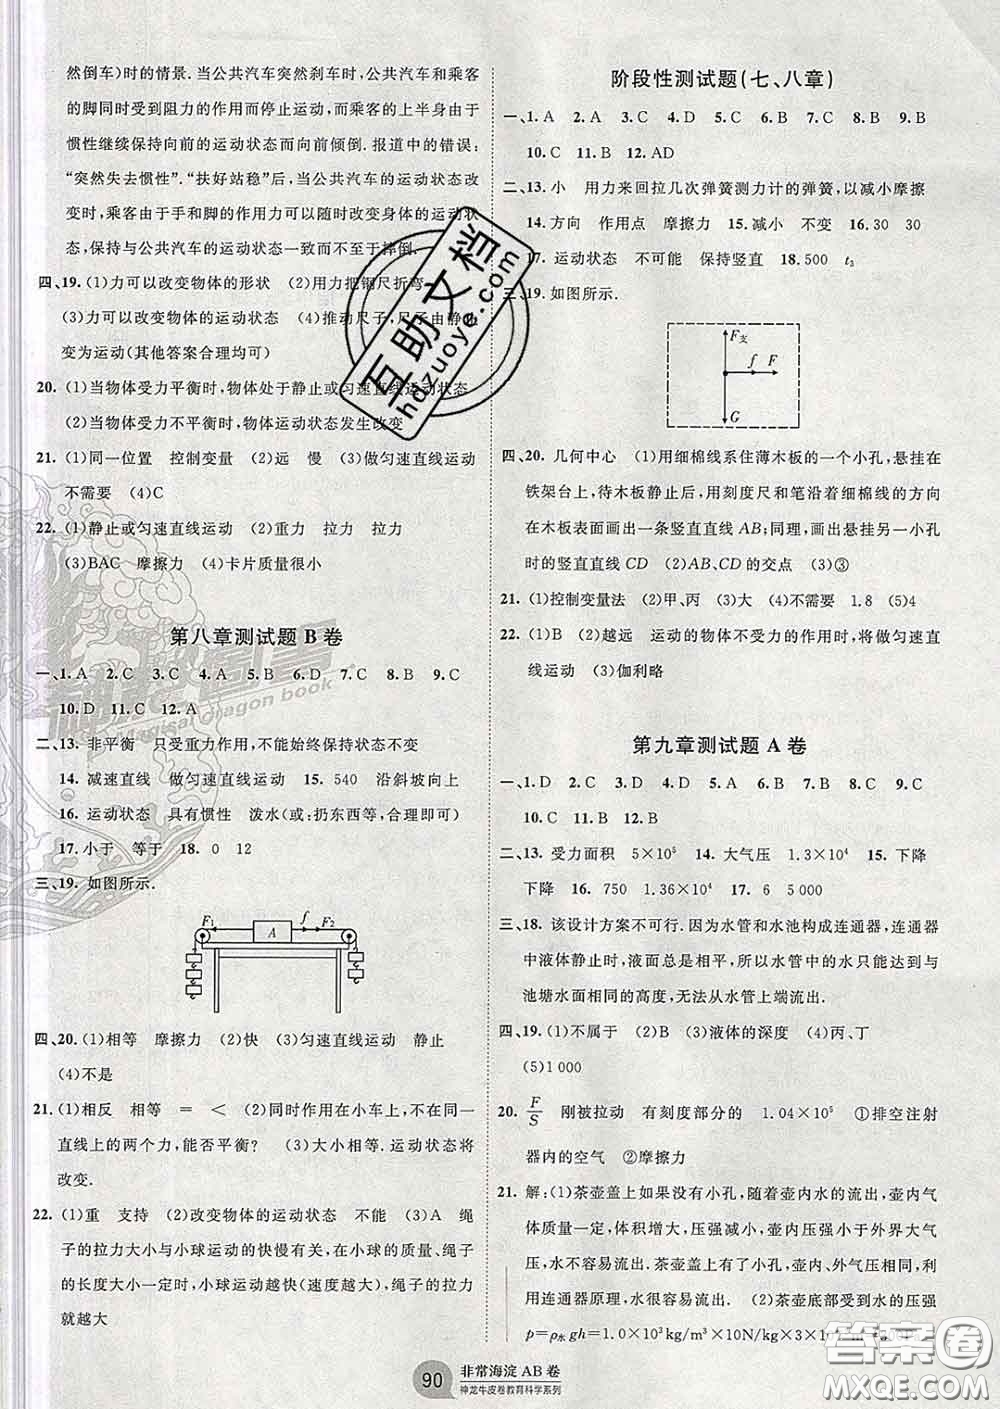 然倒车)时的情景.当公共汽车突然刹车时,公共汽车和乘客
的脚同时受到阻力的作用而停止运动,而乘客的上半身由于
惯性继续保持向前的运动状态而向前倾倒.报道中的错误:
“突然失去惯性”.“扶好站稳”后,当公共汽车的运动状态改
变时,乘客由于手和脚的作用力可以随时改变身体的运动状
态,保持与公共汽车的运动状态一致而不至于摔倒.
四、19.(1)力可以改变物体的形状 (2)用力把钢尺折弯
(3)力可以改变物体的运动状态 (4)推动尺子,尺子由静止
变为运动(其他答案合理均可)
20.(1)当物体受力平衡时,物体处于静止或匀速直线运动状态
(2)当物体受力不平衡时,物体运动状态发生改变
21.(1)同一位置 控制变量 (2)远 慢 (3)做匀速直线运动
不需要 (4)C
22.(1)静止或匀速直线运动 (2)重力 拉力 拉力
(3)BAC 摩擦力 (4)卡片质量很小
第八章测试题 B 卷
一、1.A 2.C 3.C 4.A 5.B 6.D 7.D 8.D 9.C
10.D 11.C 12.A
二、13.非平衡 只受重力作用,不能始终保持状态不变
14.减速直线 做匀速直线运动 15.540 沿斜坡向上
16.运动状态 具有惯性 泼水(或:扔东西等,合理即可)
17.小于 等于 18.0 12
三、19.如图所示.
F₁ A f F₂
四、20.(1)相等 摩擦力 (2)快 (3)匀速直线运动 静止
(4)不是
21.(1)相反 相等 = < (2)同时作用在小车上,不在同一
直线上的两个力,能否平衡? (3)大小相等.运动状态将
改变.
22.(1)重 支持 (2)改变物体的运动状态 不能 (3)A 绳
子的拉力大小与小球运动的快慢有关,在小球的质量、绳子
的长度大小一定时,小球运动越快(速度越大),绳子的拉力
就越大
阶段性测试题(七、八章)
一、1.A 2.A 3.C 4.D 5.C 6.D 7.A 8.B 9.B
10.C 11.B 12.AD
二、13.小 用力来回拉几次弹簧测力计的弹簧,以减小摩擦
14.方向 作用点 摩擦力 15.减小 不变 16.30 30
17.运动状态 不可能 保持竖直 18.500 t₃
三、19.如图所示.
F支 f F
G
四、20.几何中心 (1)用细棉线系住薄木板的一个小孔,悬挂在
铁架台上,待木板静止后,用刻度尺和笔沿着细棉线的方向
在木板表面画出一条竖直直线 AB;同理,画出悬挂另一小孔
时的竖直直线 CD (2)AB、CD 的交点 (3)③
21.(1)控制变量法 (2)甲、丙 (3)大 (4)不需要 1.8 (5)4
22.(1)B (2)越远 运动的物体不受力的作用时,将做匀速直
线运动 (3)伽利略
第九章测试题 A 卷
一、1.D 2.C 3.C 4.D 5.A 6.B 7.C 8.C 9.C
10.C 11.B 12.B
二、13.受力面积 5×10⁵ 14.大气压 1.3×10⁴ 15.下降
下降 16.750 1.36×10⁴ 17.6 5 000
三、18.该设计方案不可行.因为水管和水池构成连通器,连通器
中液体静止时,液面总是相平,所以水管中的水只能达到与
池塘水面相同的高度,无法从水管上端流出.
四、19.(1)不属于 (2)B (3)液体的深度 (4)丙、丁
(5)1 000
20.F/S 刚被拉动 有刻度部分的 1.04×10⁵ ①排空注射
器内的空气 ②摩擦力
21.解:(1)茶壶盖上如果没有小孔,随着壶内水的流出,壶内气
体质量一定,体积增大,压强减小,壶内压强小于外界大气
压,水不容易流出.茶壶盖上有了小孔,壶内、外气压相同,
利用连通器原理,水很容易流出. (2)茶壶底部受到水的压强
p=ρ水gh=1.0×10³kg/m³×10N/kg×3×
互助文档
hdzuoye.com
Magical dragon book
90
非常海淀 AB 卷
神龙牛皮卷教育科学系列
答案卷
MXQE.COM